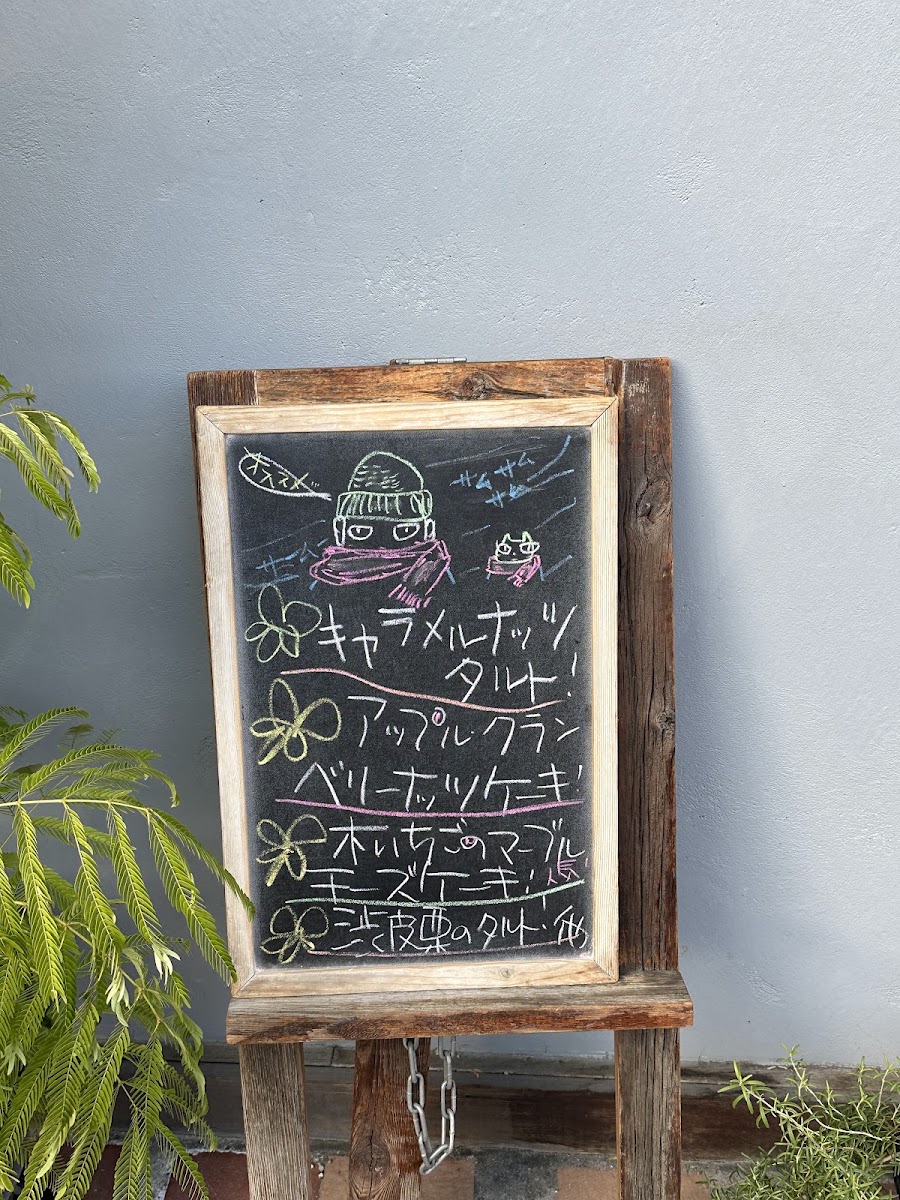 オススメ
サムサム
サム
サム
キャラメルナッツ
タルト!
アップル・クラン
ベリーナッツケーキ!
木いちごのマーブル
チーズケーキ!
渋皮栗のタルト・他